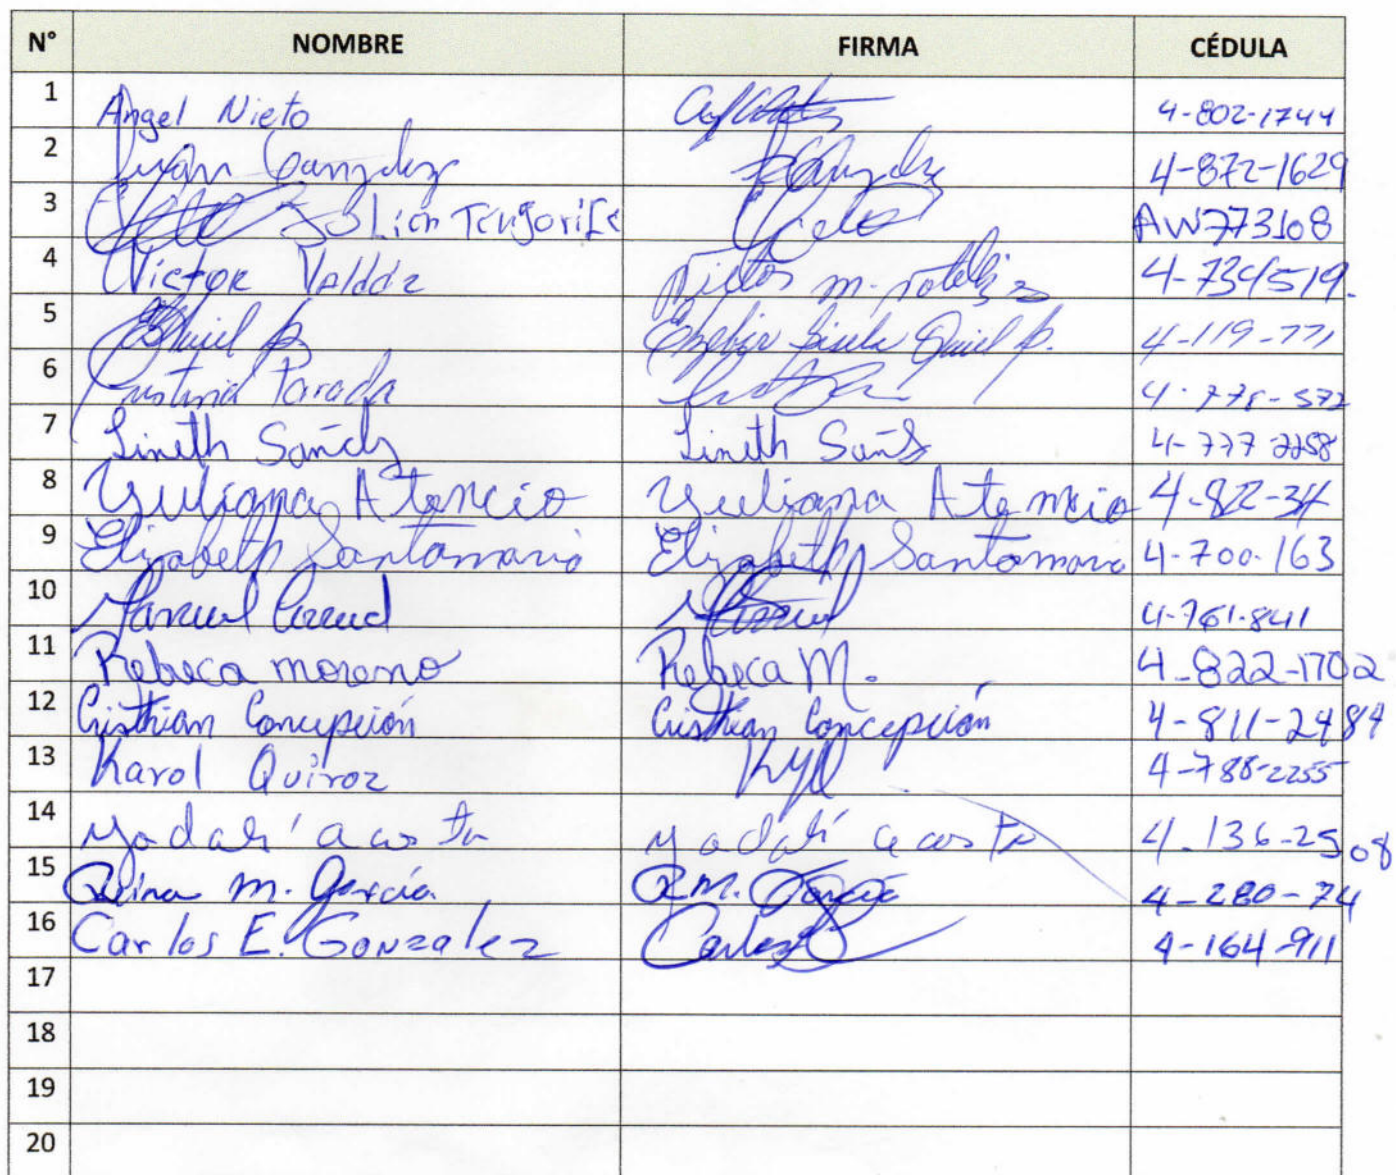 N° NOMBRE FIRMA CÉDULA
1 Angel Nieto 4-802-1744
2 4-872-1629
3 AW773108
4 Victor Valdez Victor m. 4-734519.
5 Quiel p. Gisela Quiel p. 4-119-771
6 Cristina Parada
7 Lineth Lineth 4-777-2258
8 Yuliana Atencio Yuliana Atencio 4-822-34
9 Elizabeth Santamaria Elizabeth Santamaria 4-700-163
10 Manuel 4-761-841
11 Rebeca moreno Rebeca M. 4-822-1702
12 Cristhian Concepción Cristhian Concepción 4-811-2484
13 Karol Quiroz 4-788-2255
14 yodalí acosta yodalí acosta 4-136-2508
15 Reina m. García R.M. García 4-280-74
16 Carlos E. Gonzalez Carlos 4-164-911
17
18
19
20